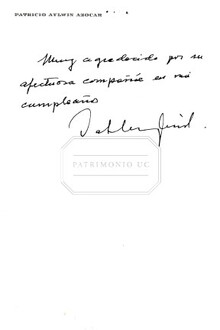 PATRICIO AYLWIN AZOCAR
Muy agradecido por su
afectuosa compañía en mi
cumpleaños
PATRIMONIO UC